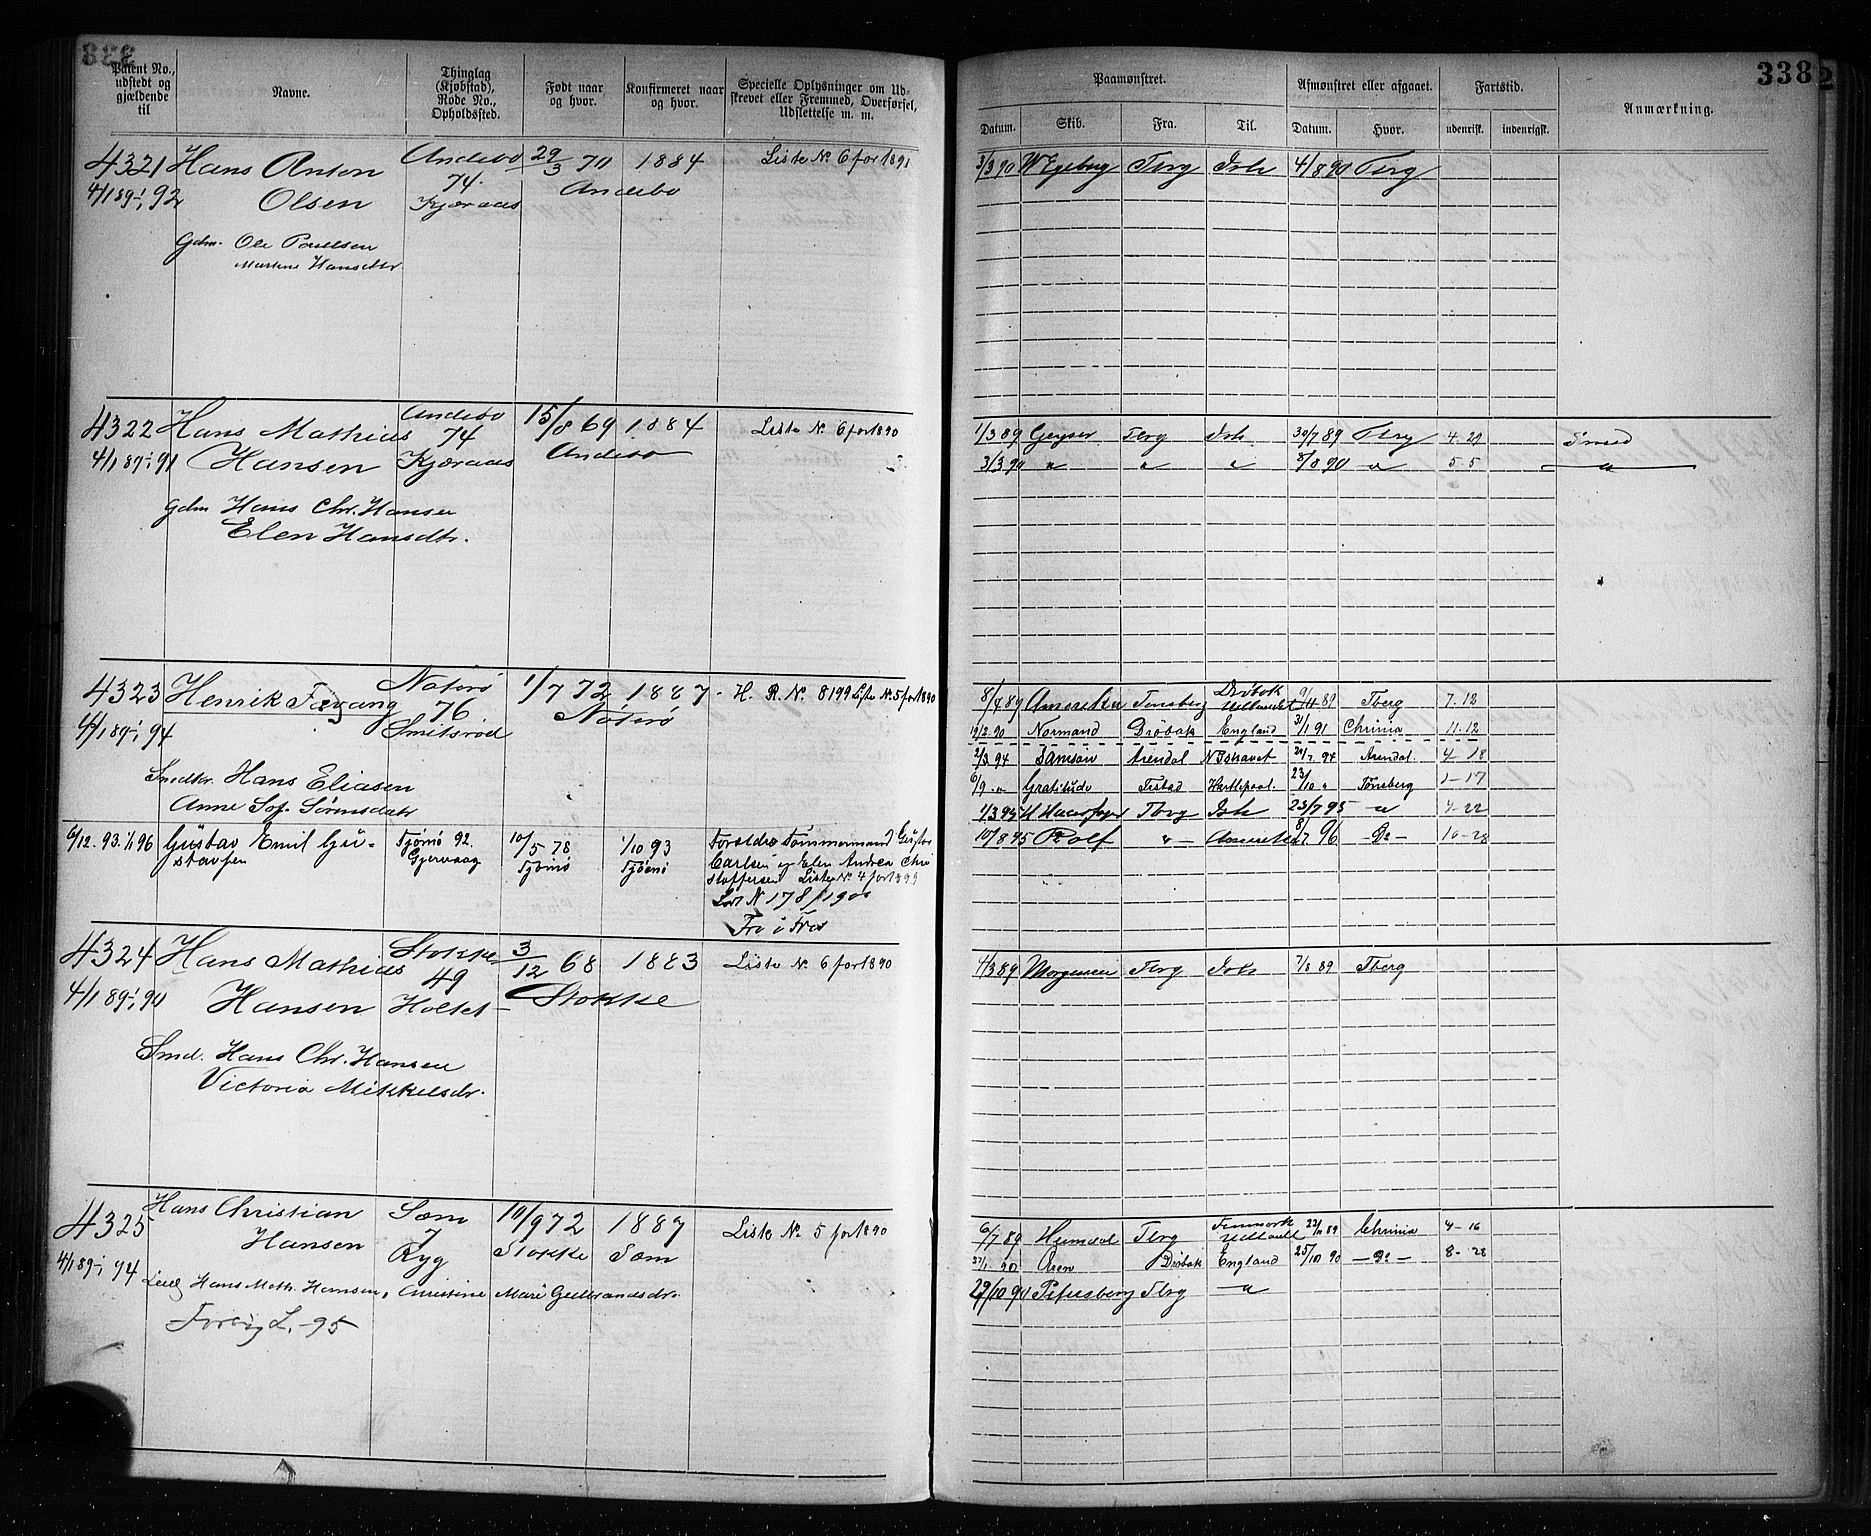 338
Patent No., udstedt og gjældende til
Navne.
Thinglag (Kjøbstad), Rode No., Opholdssted.
Født naar og hvor.
Konfirmeret naar og hvor.
Specielle Oplysninger om Udskrevet eller Fremmed, Overførsel, Udslettelse m. m.
Paamønstret.
Afmønstret eller afgaaet.
Fartstid.
Anmærkning.
Datum. Skib. Fra. Til. Datum. Hvor. udenrigsk. indenrigsk.
4321 Hans Anton Andebo 29/3 70 1884 Liste No 6 for 1891
4/1 89-1/1 92 Olsen 74. Andebo
Kjæraas
Gdm. Ole Paulsen
Martine Hansdtr.
3/3 90 W Egeberg Tbrg Ish 4/8 90 Tbrg
4322 Hans Mathias Andebo 15/8 69 1884 Liste No 6 for 1890
4/1 89-1/1 91 Hansen 74 Andebo
Kjæraas
Gdm Hans Chr. Hansen
Elen Hansdtr.
1/3 89 Geyser Tbrg Ish 30/7 89 Tbrg 4.29 Smed
3/3 90 " " " 8/8 90 " 5.5 "
4323 Henrik Føyang Nøterø 1/7 72 1887 - H. R. No. 8199 Liste No. 5 for 1890
4/1 89-1/1 94 76 Nøterø
Smitsrød
Smedkr. Hans Eliasen
Anne Sof. Sørensdatr
8/4 89 Amerika Tønsberg Drøbak Udlandet 9/11 89 Tberg 7.12
19/2 90 Normand Drøbak England 31/1 91 Chrinia 11.12
2/3 94 Samson Arendal N Ishavet 20/7 94 Arendal. 4-18
6/9 " Gratitude Frstad Hartlepool. 23/10 " Tønsberg 1-17
1/3 95 H Haarfager Tbrg Ish 23/7 95 " 4-22
10/8 95 Rolf " - 8/7 96 - Do - 10-28
6/12. 93. 1/1 96 Gustav Emil Gu- Tjømø 92. 10/5 78 1/10 93 Forældre Tømmermand Gustav
stavsen Gjervaag Tjømø Tjømø Carlsen og Elen Andrea Chri
stoffersen Liste No 4 for 1899
Løst N 178/1900
4324 Hans Mathias Stokke 3/12 68 1883 Liste No. 6 for 1890
4/1 89-1/1 90 Hansen 49 Stokke
Holtet
Smd. Hans Chr. Hansen
Victoria Mikkelsdr.
4/3 89 Morgenen Tbrg Ish 7/8 89 Tberg
4325 Hans Christian Sæm 10/9 72 1887 Liste No. 5 for 1890
4/1 89-1/1 94 Hansen 7 Stokke Sæm
Ryg
Hans Math. Hansen, Christine Marie Gulbrandsdr.
Forbig L. -95
6/7 89 Heimdal Tbrg Fenmark Udlandt 22/11 89 Chrinia 4-16
27/1. 90 Øren Drøbak England 25/10 90 - Do - 8-28
29/10 90 Petersborg Tbrg "